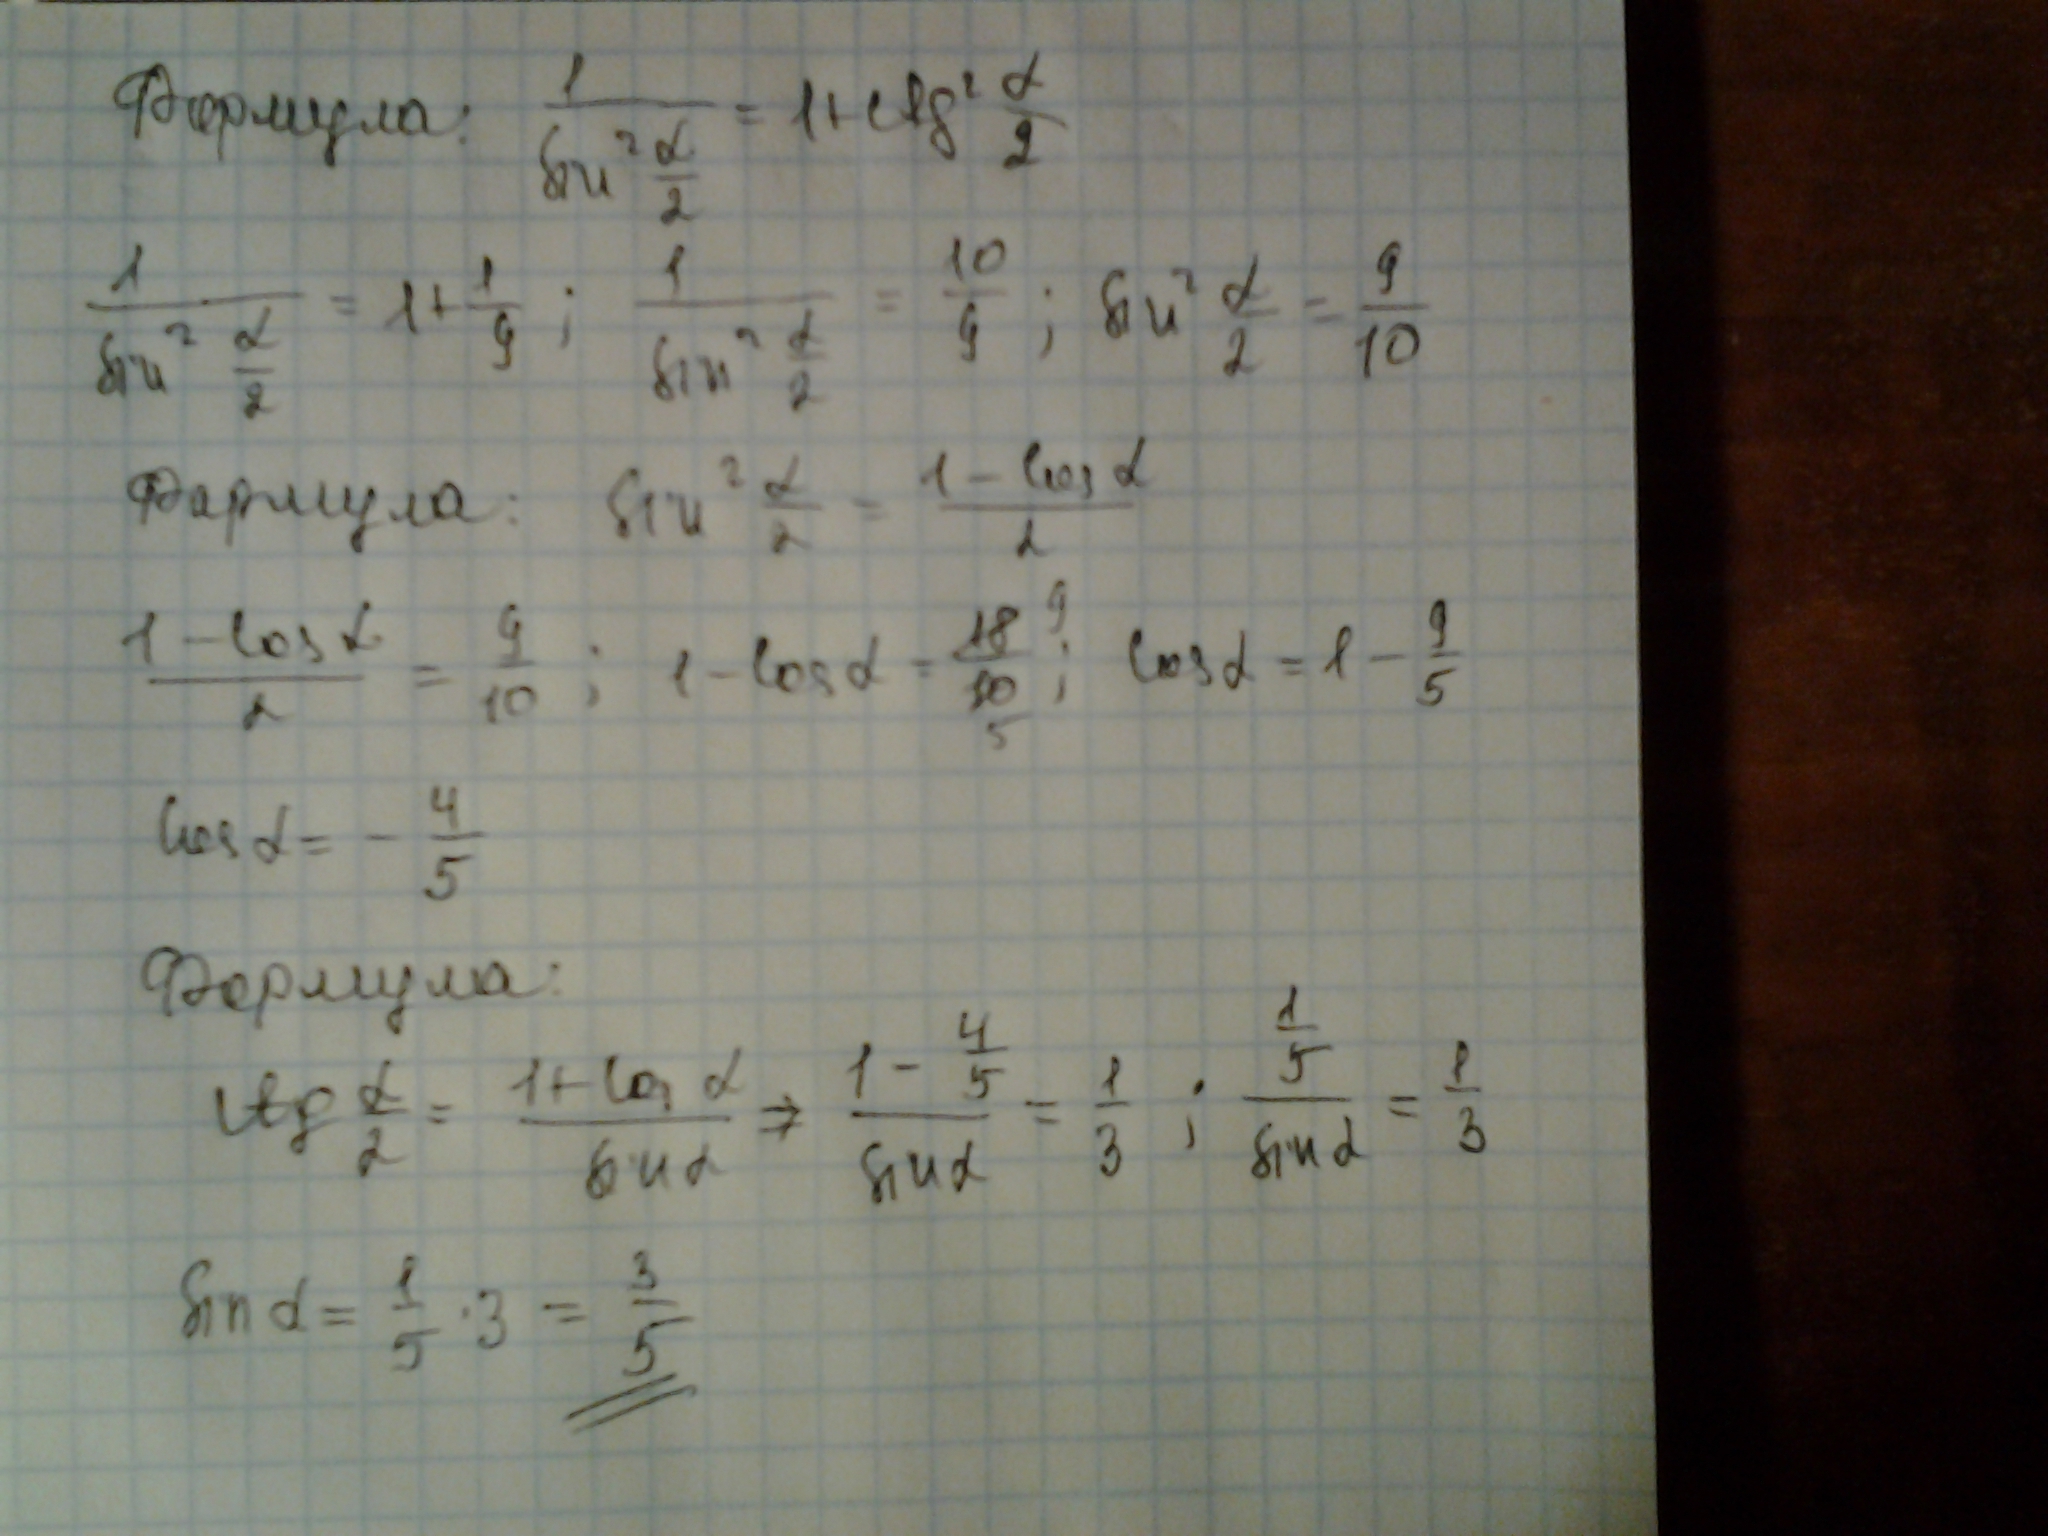 Формула: 1/sin² α/2 = 1+ctg² α/2
1/sin² α/2 = 1+1/9; 1/sin² α/2 = 10/9; sin² α/2 = 9/10
Формула: sin² α/2 = (1-cos α)/2
(1-cos α)/2 = 9/10; 1-cos α = 18 9/10 5; cos α = 1-9/5
cos α = -4/5
Формула:
ctg α/2 = (1+cos α)/sin α ⇒ (1-4/5)/sin α = 1/3; (1/5)/sin α = 1/3
sin α = 1/5 · 3 = 3/5